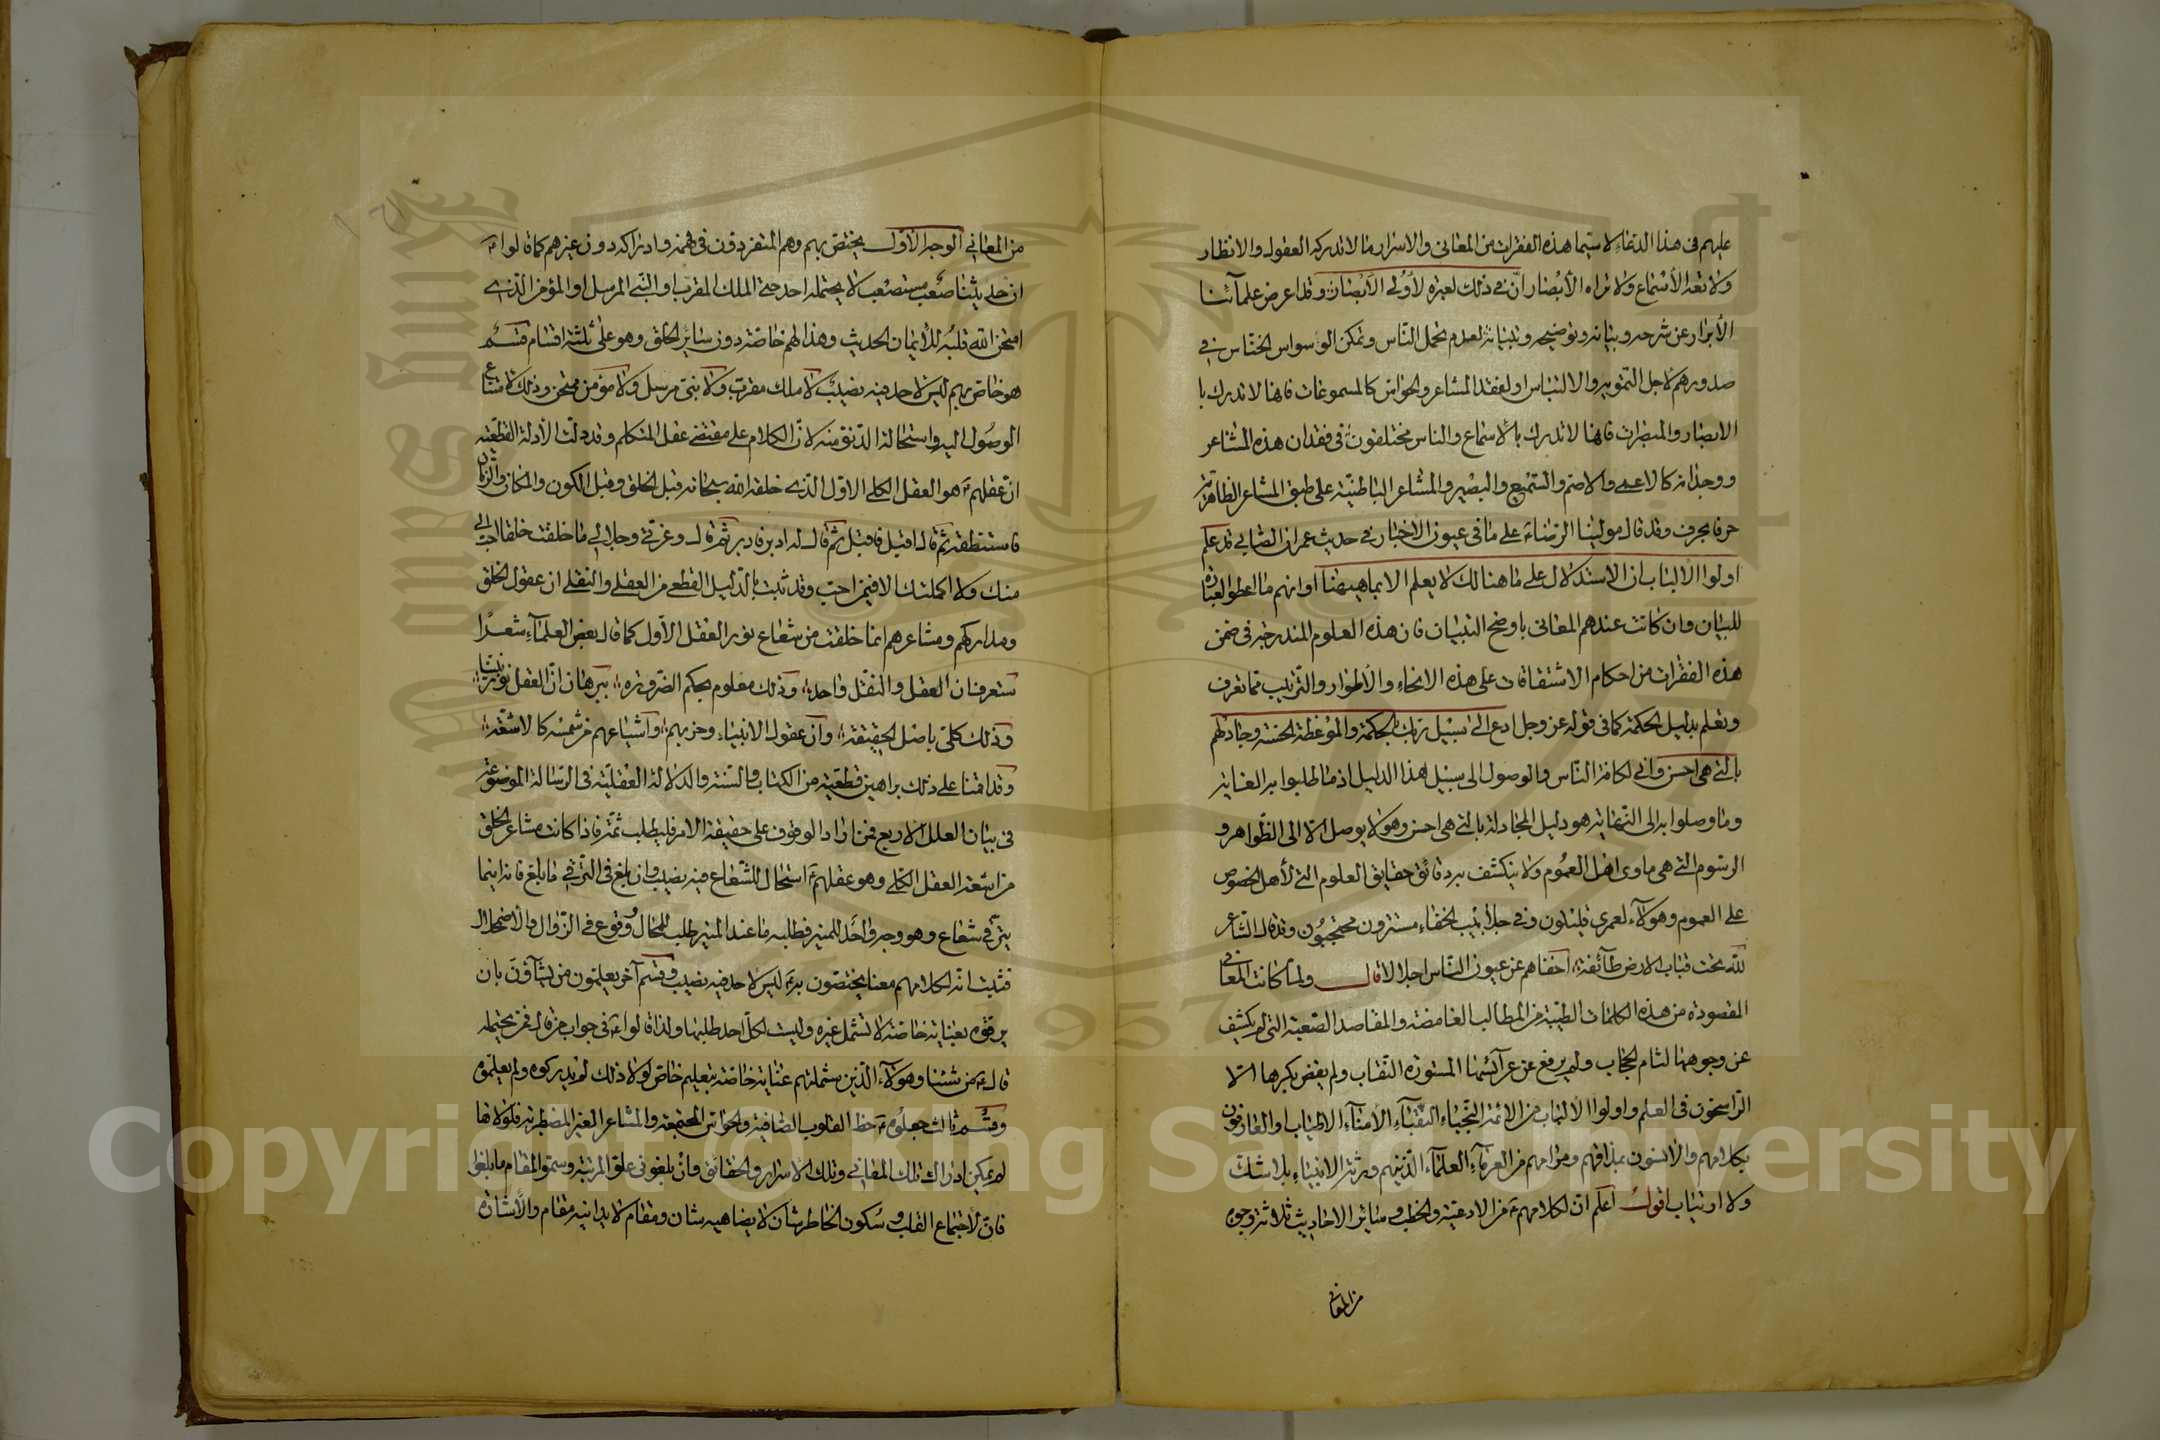 عليهم فى هذا الدعاء لا سيما هذه الفقرات من المعانى والاسرار ما لا تدركه العقول والانظار
ولا تعه الأسماع ولا تراه الأبصار ان فى ذلك لعبرة لأولى الأبصار وقد اعرض علمآئنا
الأبرار عن شرحه وبيانه وتوضيحه وتبيانه لعدم تحمل الناس وتمكن الوسواس الخناس فى
صدورهم لاجل التمويه والالتباس او لفقد المشاعر والحواس كالمسموعات فانها لا تدرك با
الابصار والمبصرات فانها لا تدرك بالاسماع والناس مختلفون فى فقدان هذه المشاعر
ووجدانه كالاعمى والاصم والسميع والبصير والمشاعر الباطنية على طبق المشاعر الظاهرية
حرفا بحرف وقد قال مولينا الرضاء على ما فى عيون الأخبار فى حديث عمران الصابى قد علم
اولوا الألباب ان الاستدلال على ما هنالك لا يعلم الا بما هيهنا او انهم ما اعطوا العبارة
للبيان وان كانت عندهم المعانى باوضح التبيان فان هذه العلوم المندرجة فى ضمن
هذه الفقرات من احكام الاشتقاقات على هذه الانحاء والأطوار والترتيب مما تعرف
وتعلم بدليل الحكمة كما فى قوله عز وجل ادع الى سبيل ربك بالحكمة والموعظة الحسنة وجادلهم
بالتى هى احسن وانى لكافة الناس والوصول الى سبيل هذا الدليل اذ ما طلبوا به العناية
وما وصلوا به الى النهاية هو دليل المجادلة بالتى هى احسن وهو لا يوصل الا الى الظواهر و
الرسوم التى هى ماوى اهل العموم ولا ينكشف به دقائق حقايق العلوم التى لأهل الخصوص
على العموم وهؤلآء لعمرى قليلون وفى جلابيب الخفاء مستترون محتجبون وقد قال الشاعر
لله تحت قباب الارض طآئفة اخفاهم عن عيون الناس اجلالا قال ولما كانت المعانى
المقصودة من هذه الكلمات الطيبة من المطالب الغامضة والمقاصد الصعبة التى لم يكشف
عن وجوهها لثام الحجاب ولم يرفع عن عرآئسها المستورة النقاب ولم يفض بكرها الا
الراسخون فى العلم واولوا الألباب من الائمة النجباء النقبآء الأمنآء الاطياب والعارفون
بكلامهم والآنسون بمذاقهم ومرامهم من العرفآء العلمآء الذينهم ورثة الانبياء بلا شك
ولا ارتياب اقول اعلم ان لكلامهم من الادعية والخطب وسائر الاحاديث ثلاثة وجوه
من المعانى
من المعانى الوجه الأول يختص بهم وهم المتفردون فى فهمه وادراكه دون غيرهم كما قالوا
ان حديثنا صعب مستصعب لا يحتمله احد حتى الملك المقرب او النبى المرسل او المؤمن الذى
امتحن الله قلبه للأيمان الحديث وهذا لهم خاصة دون سائر الخلق وهو على ثلثة اقسام قسم
هو خاص بهم ليس لاحد فيه نصيب لا ملك مقرب ولا نبى مرسل ولا مؤمن ممتحن وذلك لامتناع
الوصول اليه واستحالة الدنو منه لان الكلام على مقتضى عقل المتكلم وقد دلت الأدلة القطعية
ان عقلهم هو العقل الكلى الاول الذى خلقه الله سبحانه قبل الخلق وقبل الكون والمكان والزمان
فاستنطقه ثم قال اقبل فاقبل ثم قال له ادبر فادبر ثم قال وعزتى وجلالى ما خلقت خلقا احب الى
منك ولا اكملتك الا فيمن احب وقد ثبت بالدليل القطعى من العقلى والنقلى ان عقول الخلق
ومداركهم ومشاعرهم انما خلقت من شعاع نور العقل الاول كما قال بعض العلمآء شعرا
ستعرف ان العقل والنقل واحد وذلك معلوم بحكم الضرورة ببرهان ان العقل نور نبينا
وذلك كلى باصل الحقيقة وان عقول الانبياء وحزبهم واشياعهم من شمسه كالاشعة
وقد اقمنا على ذلك براهين قطعية من الكتاب والسنة والدلالة العقلية فى الرسالة الموضوعة
فى بيان العلل الاربع فمن اراد الوقوف على حقيقة الامر فليطلب ثمة فاذا كانت مشاعر الخلق
من اشعة العقل الكلى وهو عقلهم استحال للشعاع فيه نصيب وان بلغ فى الترقى ما بلغ فانه انما
يترقى فى شعاع وهو وجه واحد للمنير فطلبه ما عند المنير طلب للمحال ووقوع فى الزوال والاضمحلال
فثبت انه لكلامهم معنا يختصون به ليس لاحد فيه نصيب وقسم آخر يعلمون من يشآؤن بان
يرقوه بعناية خاصة لا تشمل غيره وليست لكل احد طلبها ولذا قالوا فى جواب من قال فمن يحتمله
قال من شئنا وهؤلآء الذين شملتهم عناية خاصة بتعليم خاص لولا ذلك لم يدركوه ولم يعلموه
وقسم ثالث جعلوه حظ القلوب الصافية والحواس المجتمعة والمشاعر الغير المضطربة فلولاها
لم يمكن ادراك تلك المعانى وتلك الاسرار والحقائق وان بلغوا فى علو المرتبة وسمو المقام ما بلغوا
فان لأجتماع القلب وسكون الخاطر شان لا يضاهيه شان ومقام لا يدانيه مقام والأشارة
Copyright © King Saud University
1957